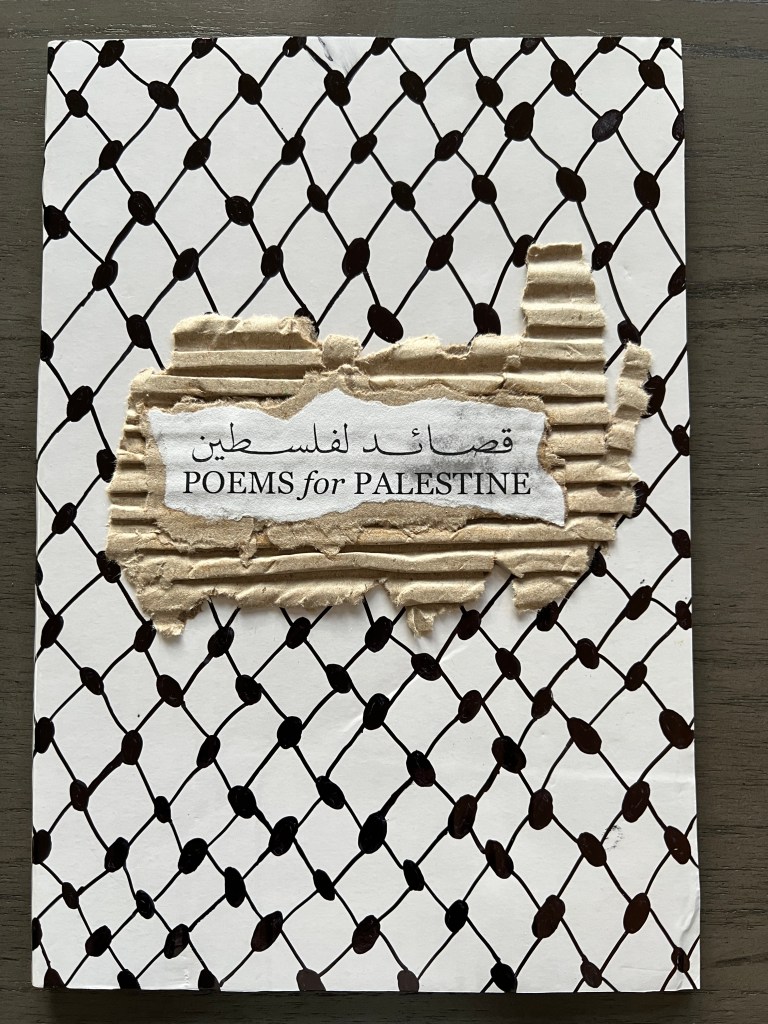 قصائد لفلسطين
POEMS for PALESTINE